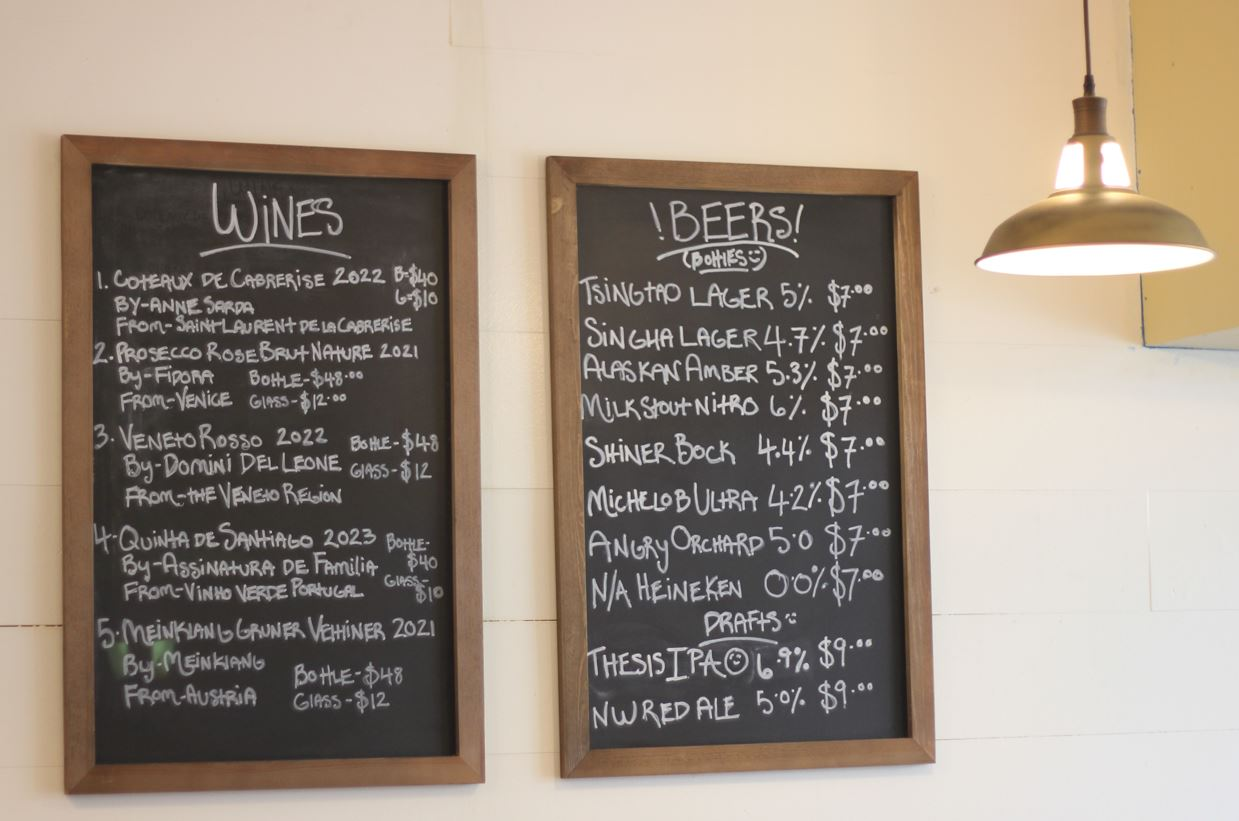 WINES
1. COTEAUX DE CABRERISE 2022 B=$40
BY-ANNE SARDA G=$10
FROM-SAINT LAURENT DE LA CABRERISE
2. PROSECCO ROSE BRUT NATURE 2021
BY-FIDORA BOTTLE-$48.00
FROM-VENICE GLASS-$12.00
3. VENETO ROSSO 2022 BOTTLE-$48
BY-DOMINI DEL LEONE GLASS-$12
FROM-THE VENETO REGION
4. QUINTA DE SANTIAGO 2023 BOTTLE-
BY-ASSINATURA DE FAMILIA $40
FROM-VINHO VERDE PORTUGAL GLASS-
$10
5. MEINKLANG GRUNER VELTLINER 2021
BY-MEINKLANG BOTTLE-$48
FROM-AUSTRIA GLASS-$12
!BEERS!
(BOTTLES)
TSINGTAO LAGER 5% $7.00
SINGHA LAGER 4.7% $7.00
ALASKAN AMBER 5.3% $7.00
MILK STOUT NITRO 6% $7.00
SHINER BOCK 4.4% $7.00
MICHELOB ULTRA 4.2% $7.00
ANGRY ORCHARD 5.0 $7.00
N/A HEINEKEN 0.0% $7.00
DRAFTS
THESIS IPA 6.9% $9.00
NW RED ALE 5.0% $9.00